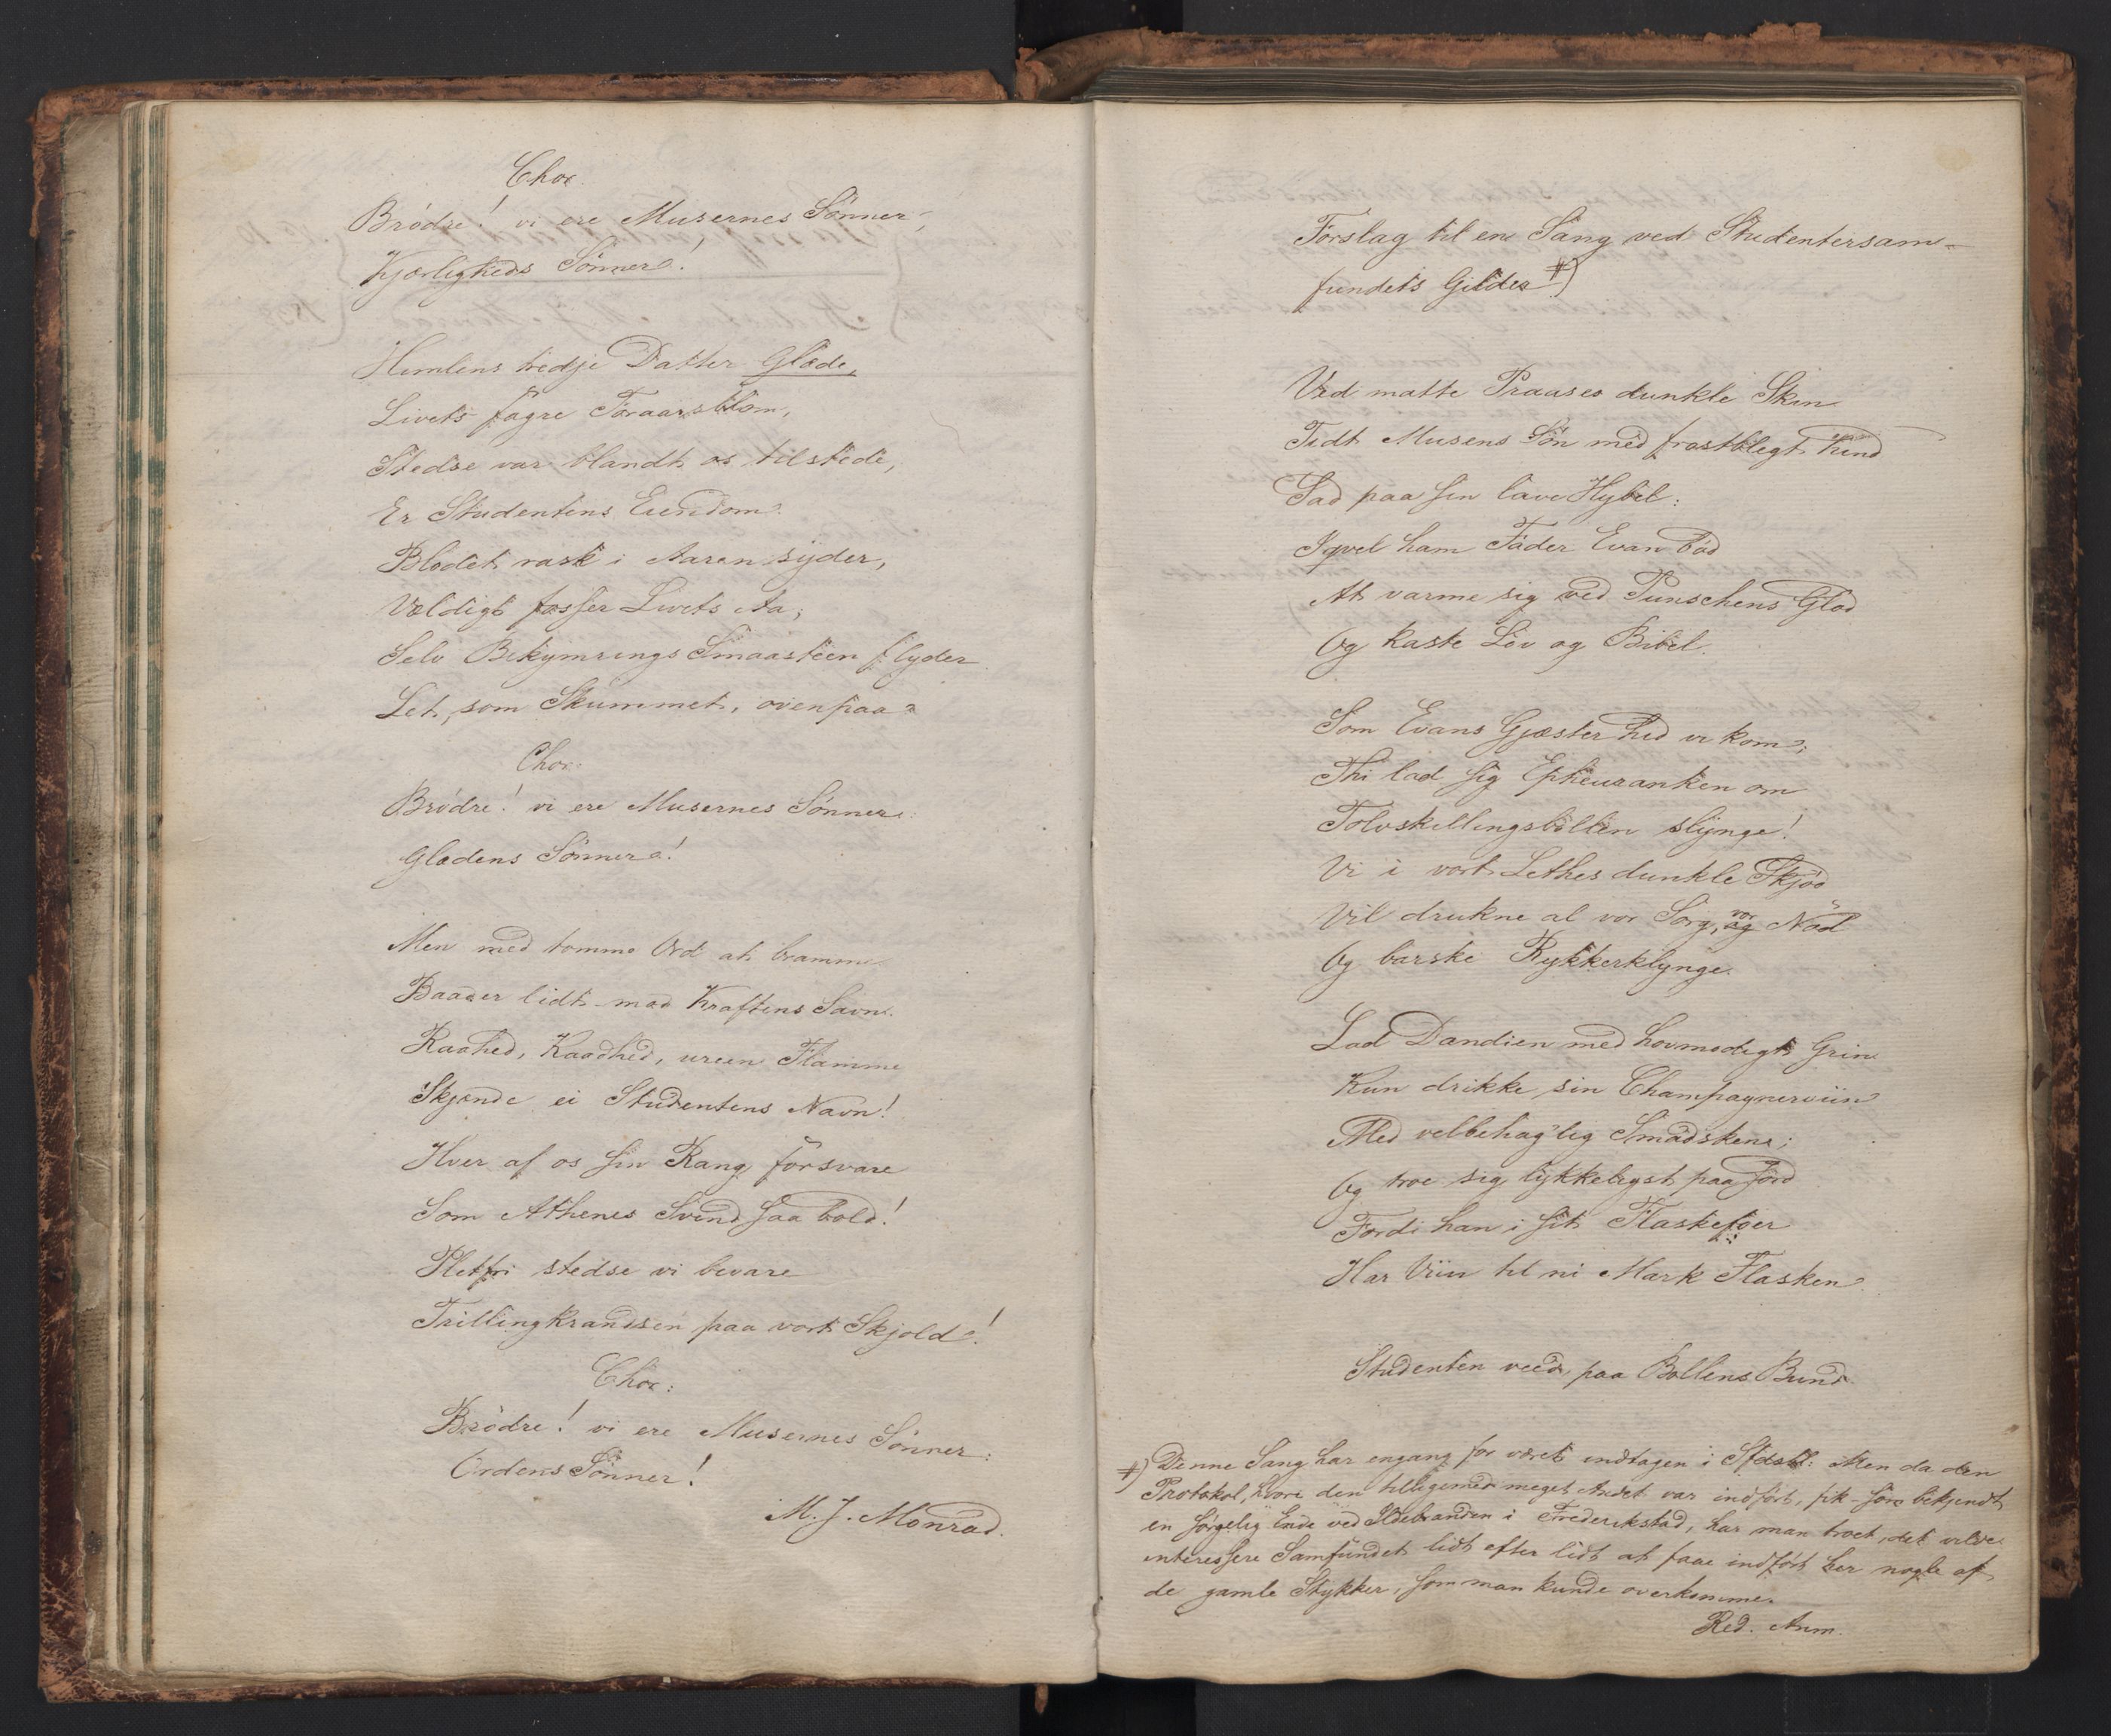 Chor.
Brödre! vi ere Musernes Sönner,
Kjærligheds Sönner!
Himlens tredje Datter Glæde,
Livets fagre Foraarsblom,
Stedse var blandt os tilstede,
Er Studentens Eiendom.
Blodet rask i Aaren syder,
Vældigt fosser Livets Aa;
Selv Bekymrings Smaasteen flyder
Let, som Skummet, ovenpaa.
Chor.
Brödre! vi ere Musernes Sönner:
Glædens Sönner!
Men med tomme Ord at bramme
Baader lidt mod Kraftens Savn.
Raahed, Kaadhed, ureen Flamme
Skjænde ei Studentens Navn!
Hver af os sin Rang forsvare
Som Athenes Svend saa bold!
Pletfri stedse vi bevare
Trillingkrandsen paa vort Skjold!
Chor:
Brödre! vi ere Musernes Sönner:
Ordens Sönner!
M. J. Monrad.
Forslag til en Sang ved Studentersam-
fundets Gilder #)
Ved matte Praases dunkle Skin
Tidt Musens Sön med frostblegt Kind
Sad paa sin lave Hybel:
Iqvel ham Fader Evan böd
At varme sig ved Punschens Glöd
Og kaste Lov og Bibel.
Som Evans Gjæster hid vi kom;
Thi lad sig Epheuranken om
Tolvskillingsbollen slynge!
Vi i vort Lethes dunkle Skjöd
Vil drukne al vor Sorg, og vor Nöd
Og barske Rykkerklynge.
Lad Dandien med hovmodigt Grin
Kun drikke sin Champagnerviin
Med velbehag'lig Smadsken;
Og troe sig lykkeligst paa Jord
Fordi han i sit Flaskefoer
Har Viin til ni Mark Flasken.
Studenten veed, paa Bollens Bund
#) Denne Sang har engang för været indtagen i Stdsbl: Men da den
Protokol, hvori den tilligemed meget Andet var indfört, fik som bekjendt
en sörgelig Ende ved Ildebranden i Frederikstad, har man troet, det vilde
interessere Samfundet lidt efter lidt at faae indfört her nogle af
de gamle Stykker, som man kunde overkomme.
Red. Anm.